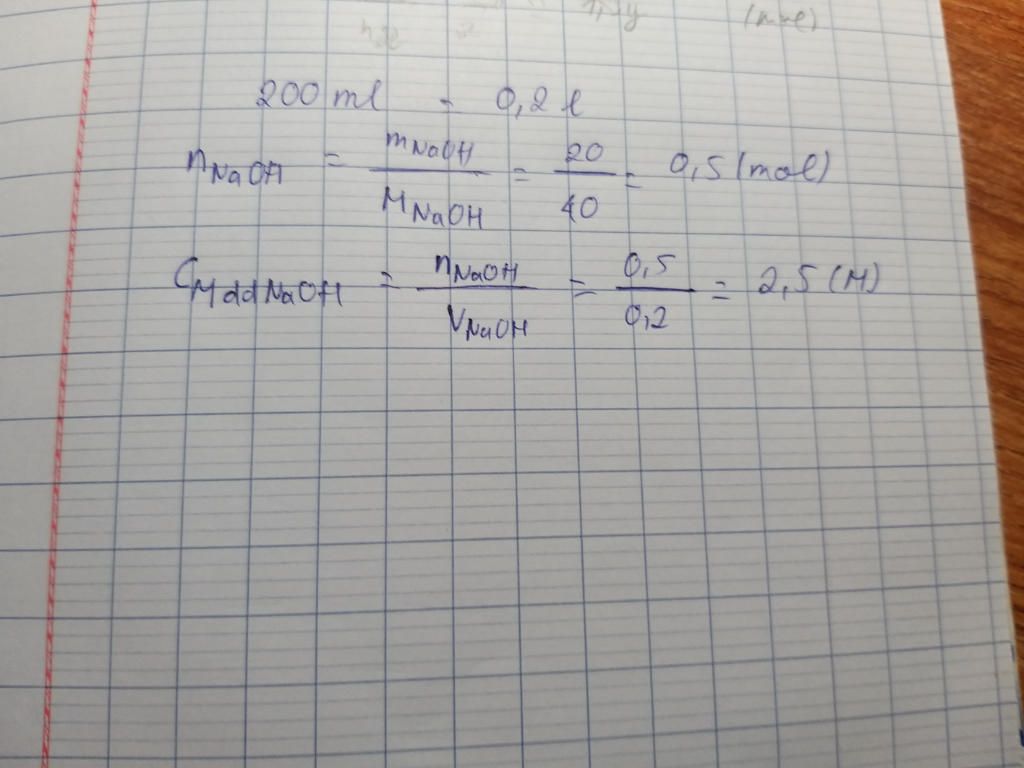 200 ml = 0,2 l
nNaOH = mNaOH / MNaOH = 20 / 40 = 0,5 (mol)
CM ddNaOH = nNaOH / VNaOH = 0,5 / 0,2 = 2,5 (M)